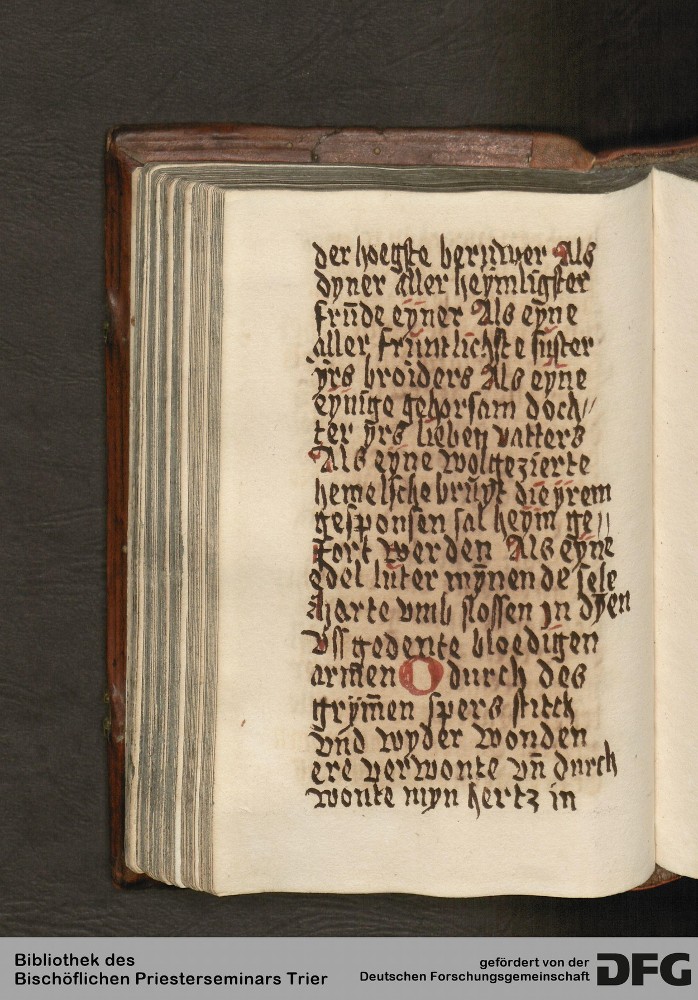 der hoegste beruwer Als
dyner aller heymligster
frūde eyner Als eyne
aller fruntlichste suster
yrs broiders Als eyne
eynige gehorsam doch//
ter yrs lieben vatters
Als eyne wolgezierte
hemelsche bruyt die yrem
gesponsen sal heym ge//
fort werden Als eyne
edel luter mynende sele
harte vmb slossen jn dyen
vss gedente bloedigen
armen O durch des
grym̄en spers stitch
vnd wyder wonden
ere verwonte vn̄ durch
wonte myn hertz in
Bibliothek des
Bischöflichen Priesterseminars Trier
gefördert von der
Deutschen Forschungsgemeinschaft
DFG